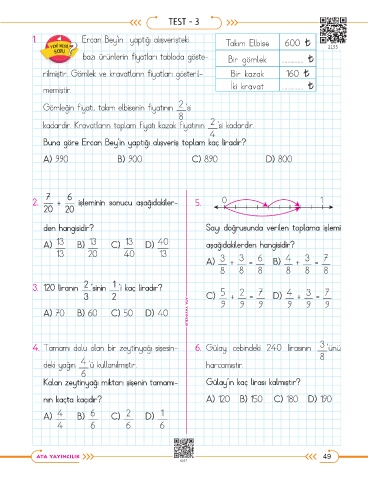 TEST - 3
1. Ercan Bey'in yaptığı alışverişteki
bazı ürünlerin fiyatları tabloda göste-
rilmiştir. Gömlek ve kravatların fiyatları gösteril-
memiştir.
YENİ NESİL
SORU
Takım Elbise 600 ₺
Bir gömlek ............ ₺
Bir kazak 160 ₺
İki kravat ............ ₺
Gömleğin fiyatı, takım elbisenin fiyatının 2/8 'si
kadardır. Kravatların toplam fiyatı kazak fiyatının 2/4 'si kadardır.
Buna göre Ercan Bey'in yaptığı alışveriş toplam kaç liradır?
A) 990 B) 900 C) 890 D) 800
2. 7/20 + 6/20 işleminin sonucu aşağıdakiler-
den hangisidir?
A) 13/13 B) 13/20 C) 13/40 D) 40/13
3. 120 liranın 2/3 'sinin 1/2 'i kaç liradır?
A) 70 B) 60 C) 50 D) 40
4. Tamamı dolu olan bir zeytinyağı şişesin-
deki yağın 4/6 'ü kullanılmıştır.
Kalan zeytinyağı miktarı şişenin tamamı-
nın kaçta kaçıdır?
A) 4/4 B) 6/6 C) 2/6 D) 1/6
5. 0 1
Sayı doğrusunda verilen toplama işlemi
aşağıdakilerden hangisidir?
A) 3/8 + 3/8 = 6/8 B) 4/8 + 3/8 = 7/8
C) 5/9 + 2/9 = 7/9 D) 4/9 + 3/9 = 7/9
6. Gülay cebindeki 240 lirasının 3/8 'ünü
harcamıştır.
Gülay'ın kaç lirası kalmıştır?
A) 120 B) 150 C) 180 D) 190
ATA YAYINCILIK
49